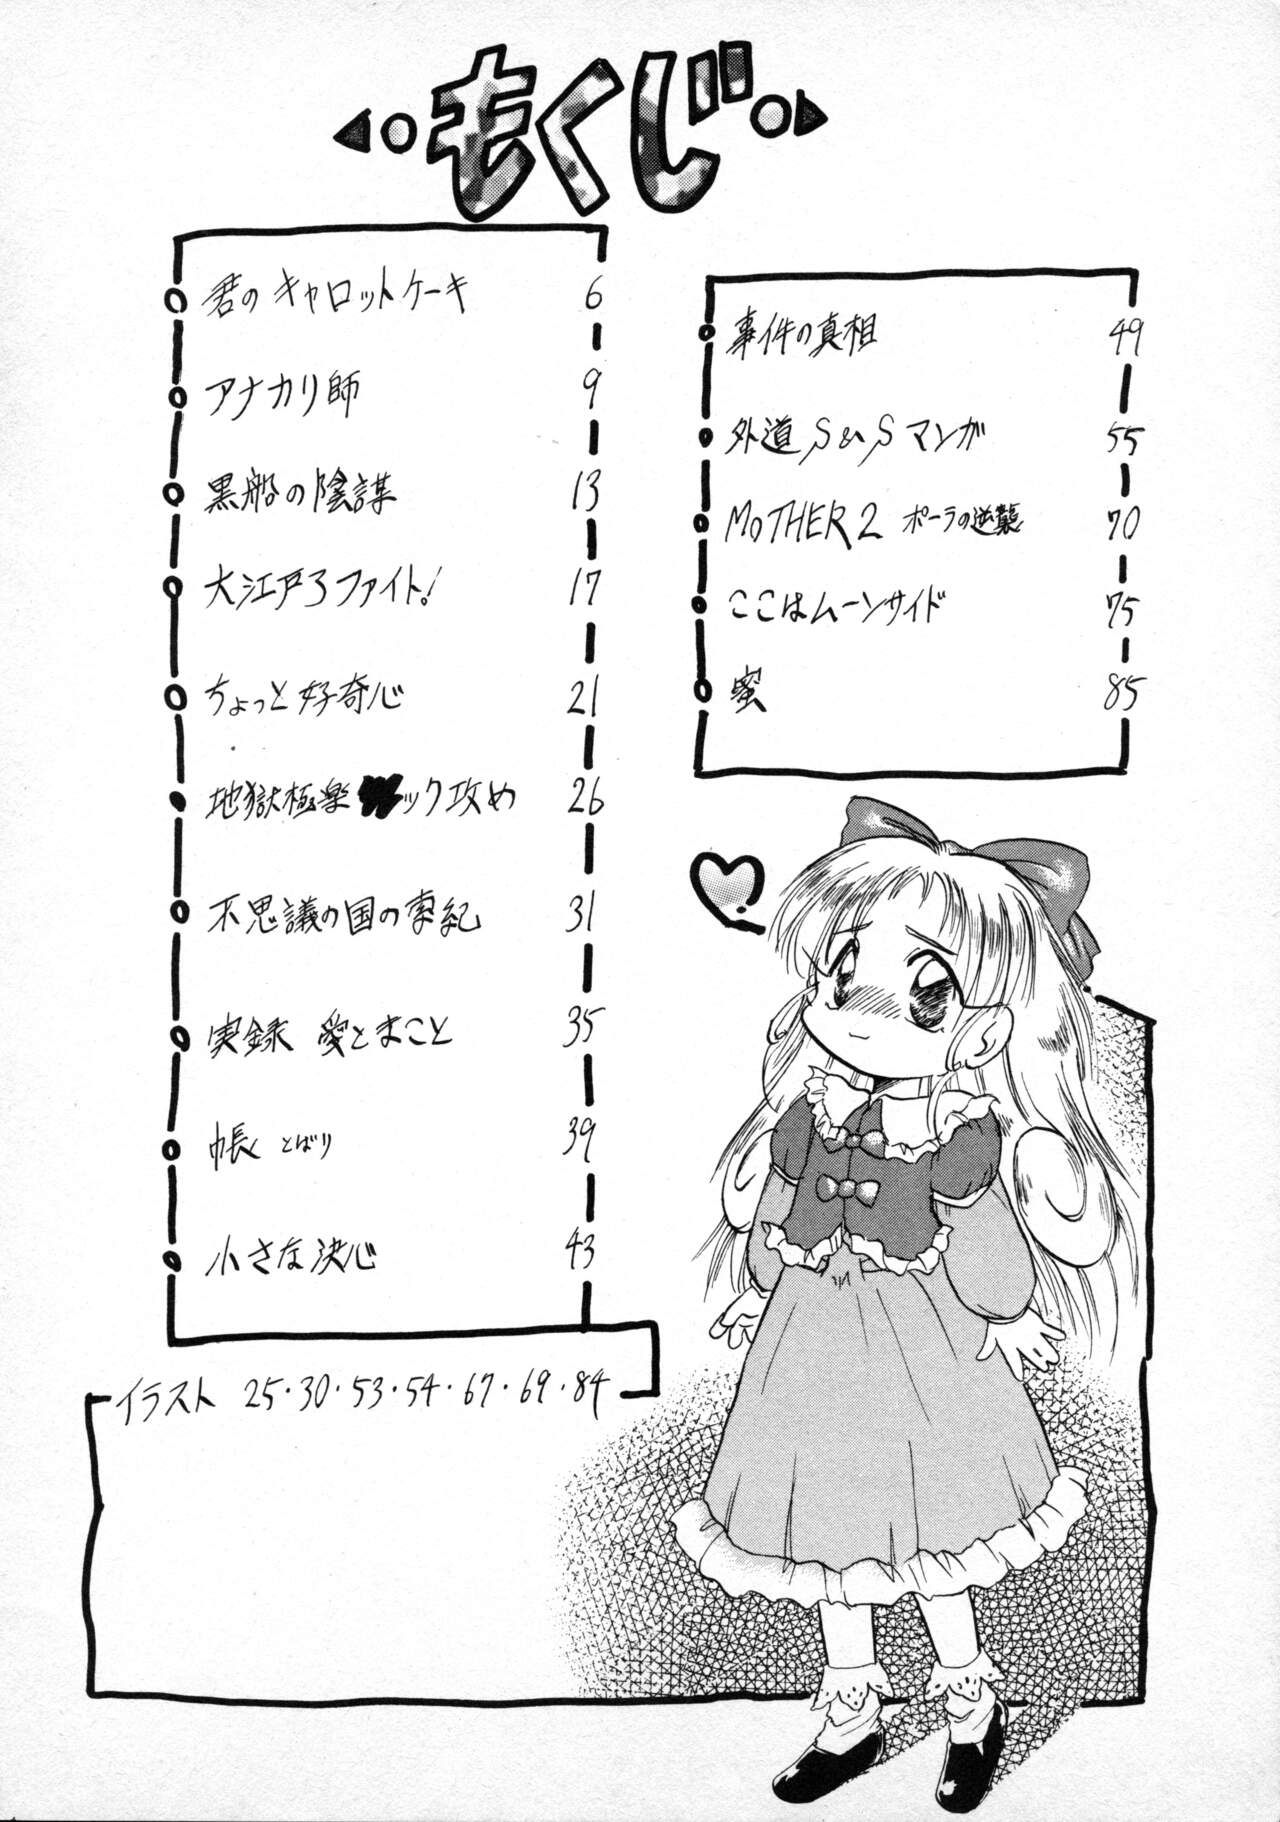 もくじ
君のキャロットケーキ 6
アナカリ師 9
黒船の陰謀 13
大江戸ファイト! 17
ちょっと好奇心 21
地獄極楽ック攻め 26
不思議の国の紀 31
実録 愛とまこと 35
帳 とばり 39
小さな決心 43
事件の真相 49
外道S&Sマンガ 55
MOTHER2 ポーラの逆襲 70
ここはムーンサイド 75
蜜 85
イラスト 25・30・53・54・67・69・84